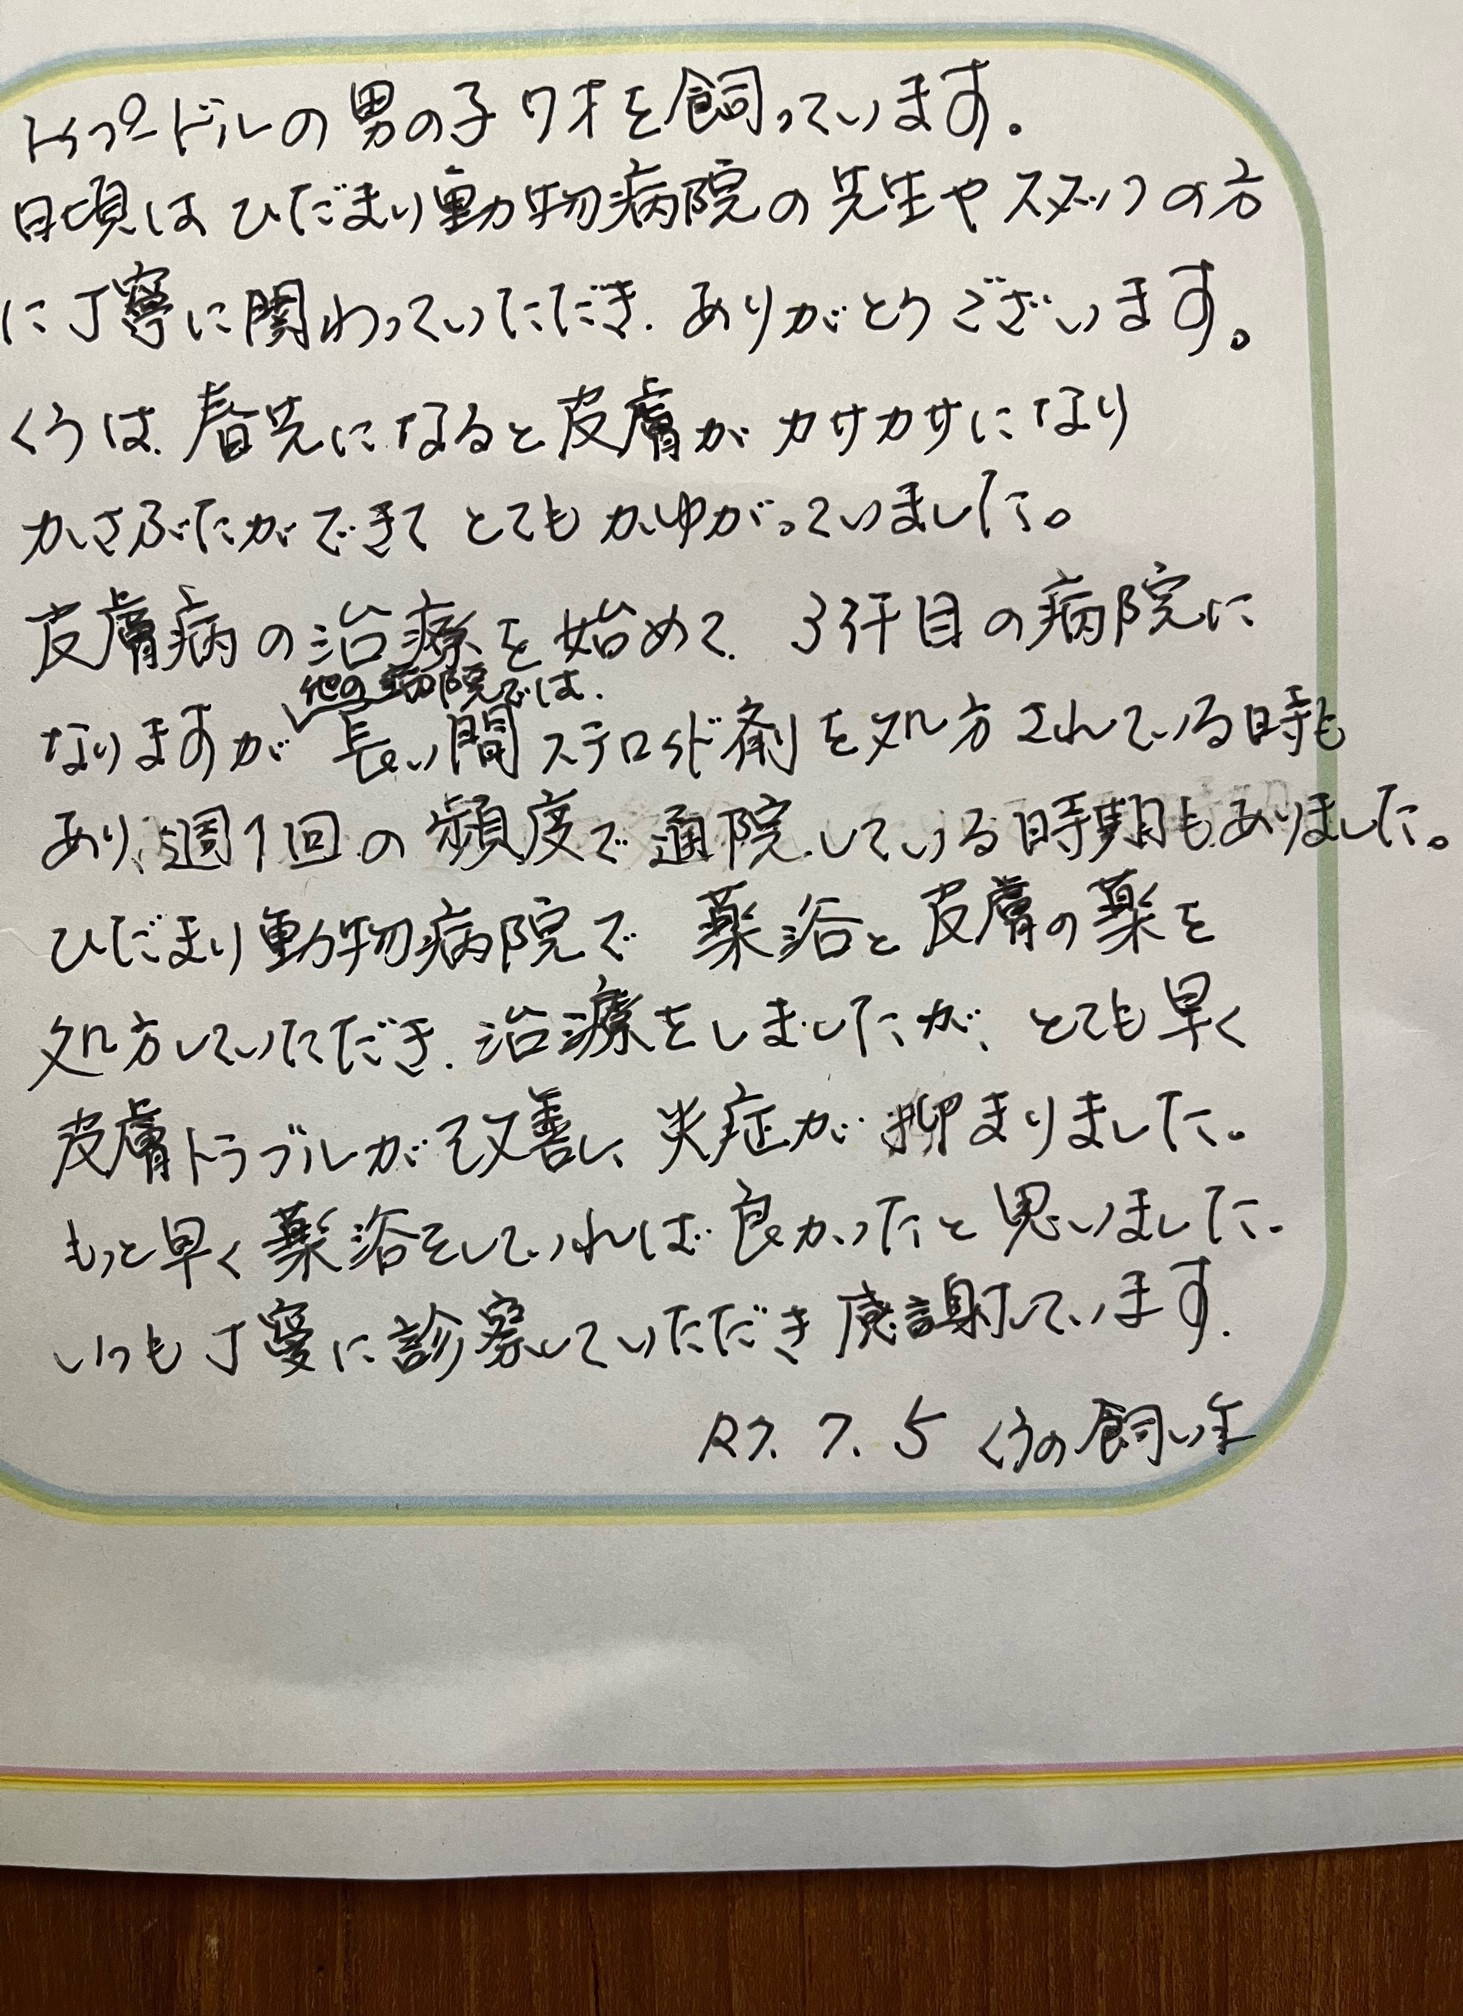 トイプードルの男の子 7才を飼っています。
日頃はひだまり動物病院の先生やスタッフの方
に丁寧に関わっていただき、ありがとうございます。
くうは、春先になると皮膚がカサカサになり
かさぶたができて とてもかゆがっていました。
皮膚病の治療を始めて、3軒目の病院に
他の病院では、
なりますが 長い間ステロイド剤を処方されている時も
あり、週1回の頻度で通院している時期もありました。
ひだまり動物病院で 薬浴と皮膚の薬を
処方していただき、治療をしましたが、とても早く
皮膚トラブルが改善し、炎症が抑まりました。
もっと早く薬浴をしていれば良かったと思いました。
いつも丁寧に診察していただき感謝しています。
R7.7.5 くうの飼い主